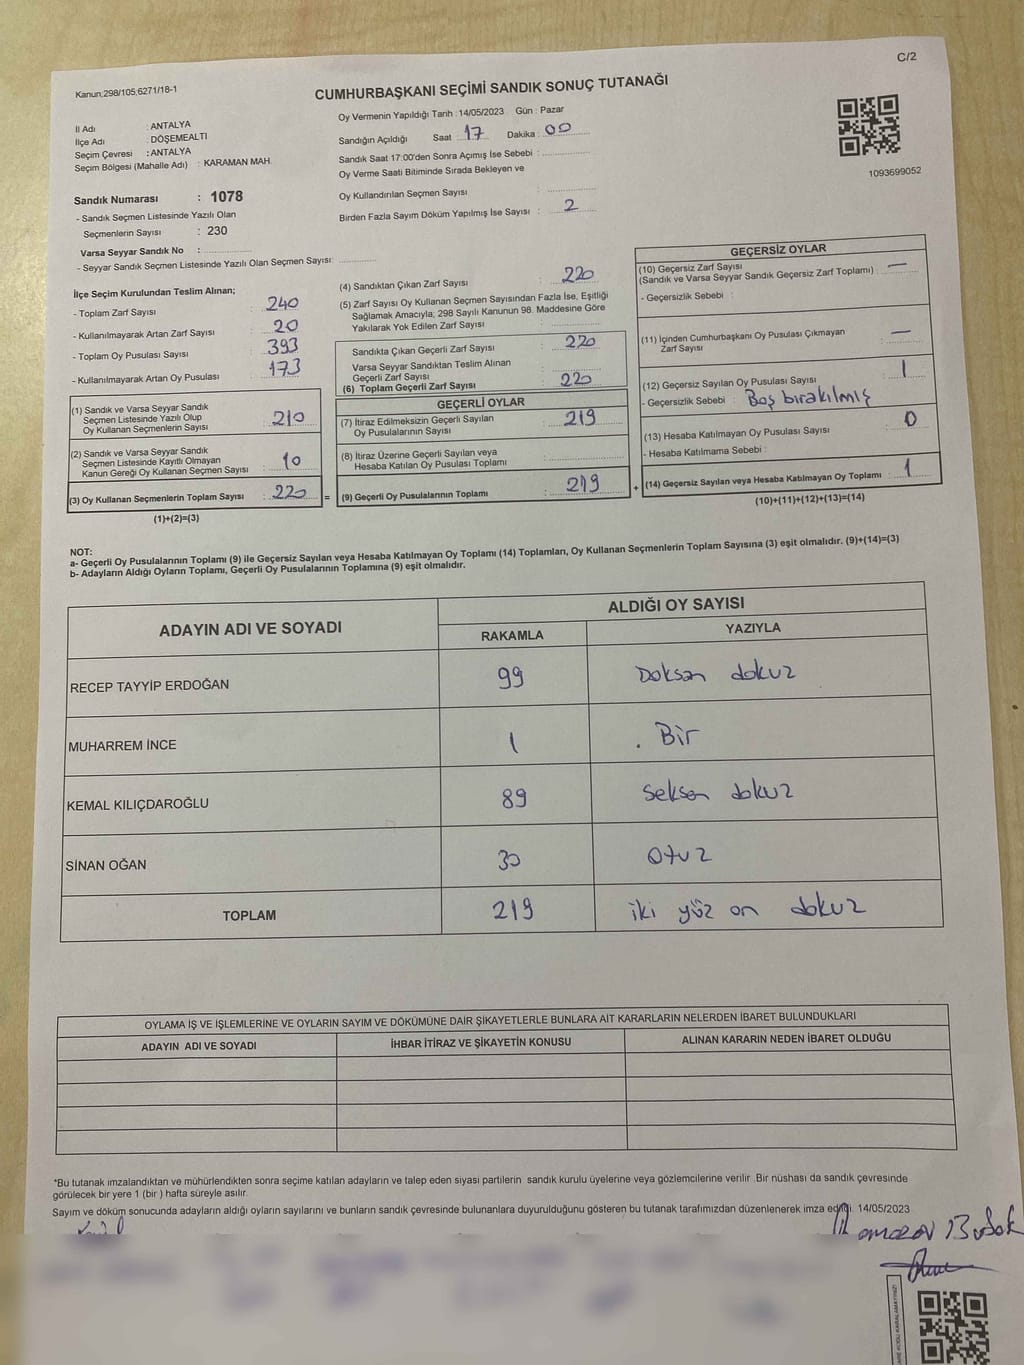 C/2
Kanun:298/105;6271/18-1
CUMHURBAŞKANI SEÇİMİ SANDIK SONUÇ TUTANAĞI
İl Adı : ANTALYA
İlçe Adı : DÖŞEMEALTI
Seçim Çevresi : ANTALYA
Seçim Bölgesi (Mahalle Adı) : KARAMAN MAH.
Sandık Numarası : 1078
- Sandık Seçmen Listesinde Yazılı Olan
Seçmenlerin Sayısı : 230
Varsa Seyyar Sandık No :
- Seyyar Sandık Seçmen Listesinde Yazılı Olan Seçmen Sayısı:
Oy Vermenin Yapıldığı Tarih : 14/05/2023 Gün : Pazar
Sandığın Açıldığı Saat : 17 Dakika : 00
Sandık Saat 17:00'den Sonra Açımış İse Sebebi :
Oy Verme Saati Bitiminde Sırada Bekleyen ve
Oy Kullandırılan Seçmen Sayısı :
Birden Fazla Sayım Döküm Yapılmış İse Sayısı : 2
1093699052
İlçe Seçim Kurulundan Teslim Alınan;
- Toplam Zarf Sayısı : 240
- Kullanılmayarak Artan Zarf Sayısı : 20
- Toplam Oy Pusulası Sayısı : 393
- Kullanılmayarak Artan Oy Pusulası : 173
(1) Sandık ve Varsa Seyyar Sandık
Seçmen Listesinde Yazılı Olup
Oy Kullanan Seçmenlerin Sayısı : 210
(2) Sandık ve Varsa Seyyar Sandık
Seçmen Listesinde Kayıtlı Olmayan
Kanun Gereği Oy Kullanan Seçmen Sayısı : 10
(3) Oy Kullanan Seçmenlerin Toplam Sayısı : 220
(1)+(2)=(3)
(4) Sandıktan Çıkan Zarf Sayısı : 220
(5) Zarf Sayısı Oy Kullanan Seçmen Sayısından Fazla İse, Eşitliği
Sağlamak Amacıyla; 298 Sayılı Kanunun 98. Maddesine Göre
Yakılarak Yok Edilen Zarf Sayısı :
Sandıkta Çıkan Geçerli Zarf Sayısı : 220
Varsa Seyyar Sandıktan Teslim Alınan
Geçerli Zarf Sayısı :
(6) Toplam Geçerli Zarf Sayısı : 220
GEÇERLİ OYLAR
(7) İtiraz Edilmeksizin Geçerli Sayılan
Oy Pusulalarının Sayısı : 219
(8) İtiraz Üzerine Geçerli Sayılan veya
Hesaba Katılan Oy Pusulası Toplamı :
= (9) Geçerli Oy Pusulalarının Toplamı : 219 +
GEÇERSİZ OYLAR
(10) Geçersiz Zarf Sayısı
(Sandık ve Varsa Seyyar Sandık Geçersiz Zarf Toplamı) : —
- Geçersizlik Sebebi :
(11) İçinden Cumhurbaşkanı Oy Pusulası Çıkmayan
Zarf Sayısı : —
(12) Geçersiz Sayılan Oy Pusulası Sayısı : 1
- Geçersizlik Sebebi : Boş bırakılmış
(13) Hesaba Katılmayan Oy Pusulası Sayısı : 0
- Hesaba Katılmama Sebebi :
(14) Geçersiz Sayılan veya Hesaba Katılmayan Oy Toplamı : 1
(10)+(11)+(12)+(13)=(14)
NOT:
a- Geçerli Oy Pusulalarının Toplamı (9) ile Geçersiz Sayılan veya Hesaba Katılmayan Oy Toplamı (14) Toplamları, Oy Kullanan Seçmenlerin Toplam Sayısına (3) eşit olmalıdır. (9)+(14)=(3)
b- Adayların Aldığı Oyların Toplamı, Geçerli Oy Pusulalarının Toplamına (9) eşit olmalıdır.
ADAYIN ADI VE SOYADI
ALDIĞI OY SAYISI
RAKAMLA YAZIYLA
RECEP TAYYİP ERDOĞAN 99 Doksan dokuz
MUHARREM İNCE 1 Bir
KEMAL KILIÇDAROĞLU 89 seksen dokuz
SİNAN OĞAN 30 otuz
TOPLAM 219 iki yüz on dokuz
OYLAMA İŞ VE İŞLEMLERİNE VE OYLARIN SAYIM VE DÖKÜMÜNE DAİR ŞİKAYETLERLE BUNLARA AİT KARARLARIN NELERDEN İBARET BULUNDUKLARI
ADAYIN ADI VE SOYADI İHBAR İTİRAZ VE ŞİKAYETİN KONUSU ALINAN KARARIN NEDEN İBARET OLDUĞU
*Bu tutanak imzalandıktan ve mühürlendikten sonra seçime katılan adayların ve talep eden siyasi partilerin sandık kurulu üyelerine veya gözlemcilerine verilir .Bir nüshası da sandık çevresinde
görülecek bir yere 1 (bir ) hafta süreyle asılır.
Sayım ve döküm sonucunda adayların aldığı oyların sayılarını ve bunların sandık çevresinde bulunanlara duyurulduğunu gösteren bu tutanak tarafımızdan düzenlenerek imza edildi. 14/05/2023